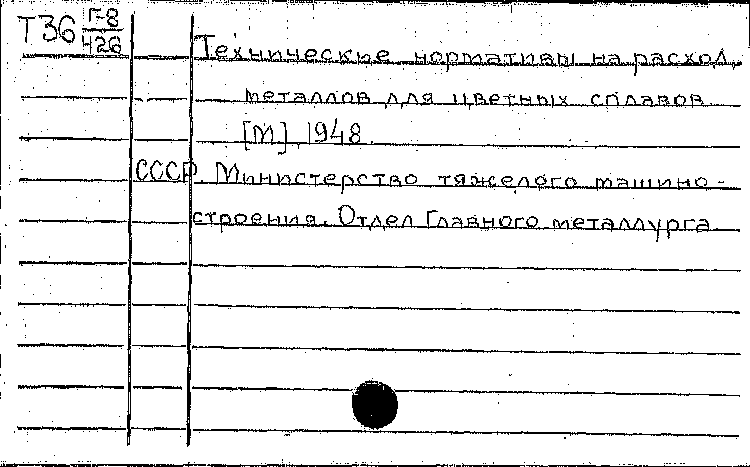 Т36 Г-8
426
Технические нормативы на расход
металлов для цветных сплавов
[М] 1948
СССР. Министерство тяжелого машино-
строения. Отдел Главного металлурга